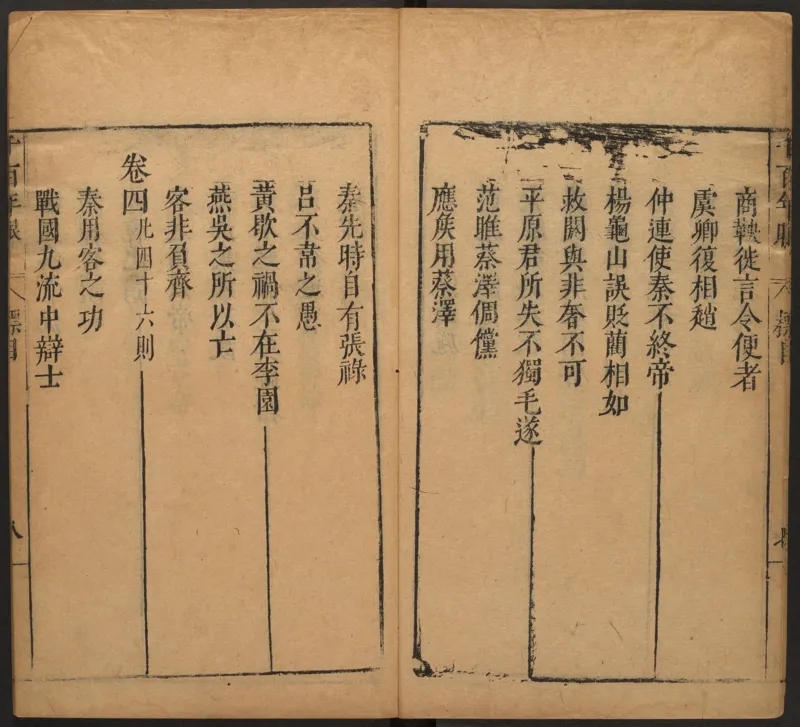 商鞅徙言令便者
虞卿復相趙
仲連使秦不終帝
楊龜山誤貶藺相如
救閼與非奢不可
平原君所失不獨毛遂
范睢蔡澤倜儻
應矦用蔡澤
秦先時自有張祿
呂不韋之愚
黃歇之禍不在李園
燕吳之所以亡
客非負齊
卷四凡四十六則
秦用客之功
戰國九流中辯士
八